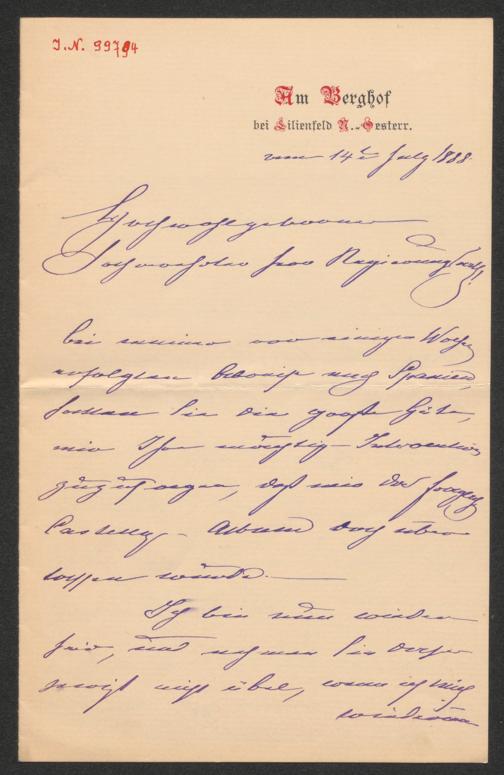 I.N. 99794
Am Berghof
bei Lilienfeld N.-Oesterr.
vom 14t July 1888.
Hochwohlgeborner
Hochverehrter Herr Regierungsrath!
bei meiner vor einigen Wochen
erfolgten Abreise nach Spanien,
hatten Sie die große Güte,
mir Ihre mächtige Intervention
zuzusagen, daß mir das
Castelly - Album doch über
lassen würde. —
Ich bin nun wieder
hier, und nehmen Sie daher
gewiß nicht übel, wenn ich mich
wiederum